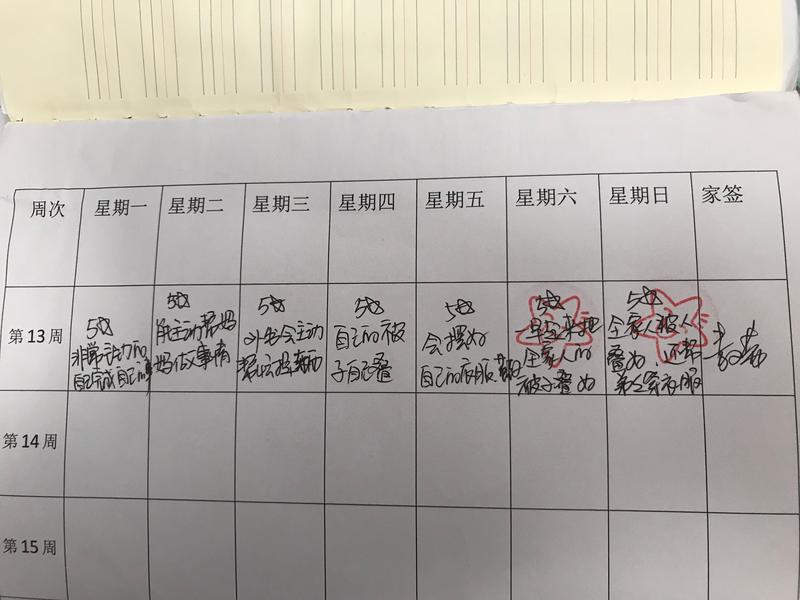 周次 星期一 星期二 星期三 星期四 星期五 星期六 星期日 家签
第13周
5☆
非常主动的
自己
5☆
能主动帮妈
妈做事情
5☆
会主动
5☆
自己的被
子自己叠
5☆
会摆好
自己的衣服
5☆
一早起来把
全家人的
被子叠好
5☆
全家人被人
叠好 还帮
衣服
第14周
第15周